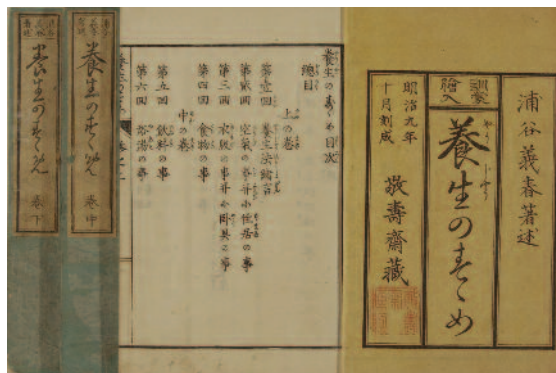 浦谷義春著述
訓蒙
繪入
養生のすゝめ
明治九年
十月刻成
敬壽齋藏
養生のすゝめ目次
總目
上の巻
第壹回 養生法緒言
第貳回 空氣の事并に住居の事
第三回 衣服の事并に臥具の事
第四回 食物の事
中の巻
第五回 飲料の事
第六回 浴湯の事
養生のすゝめ 巻中
養生のすゝめ 巻下